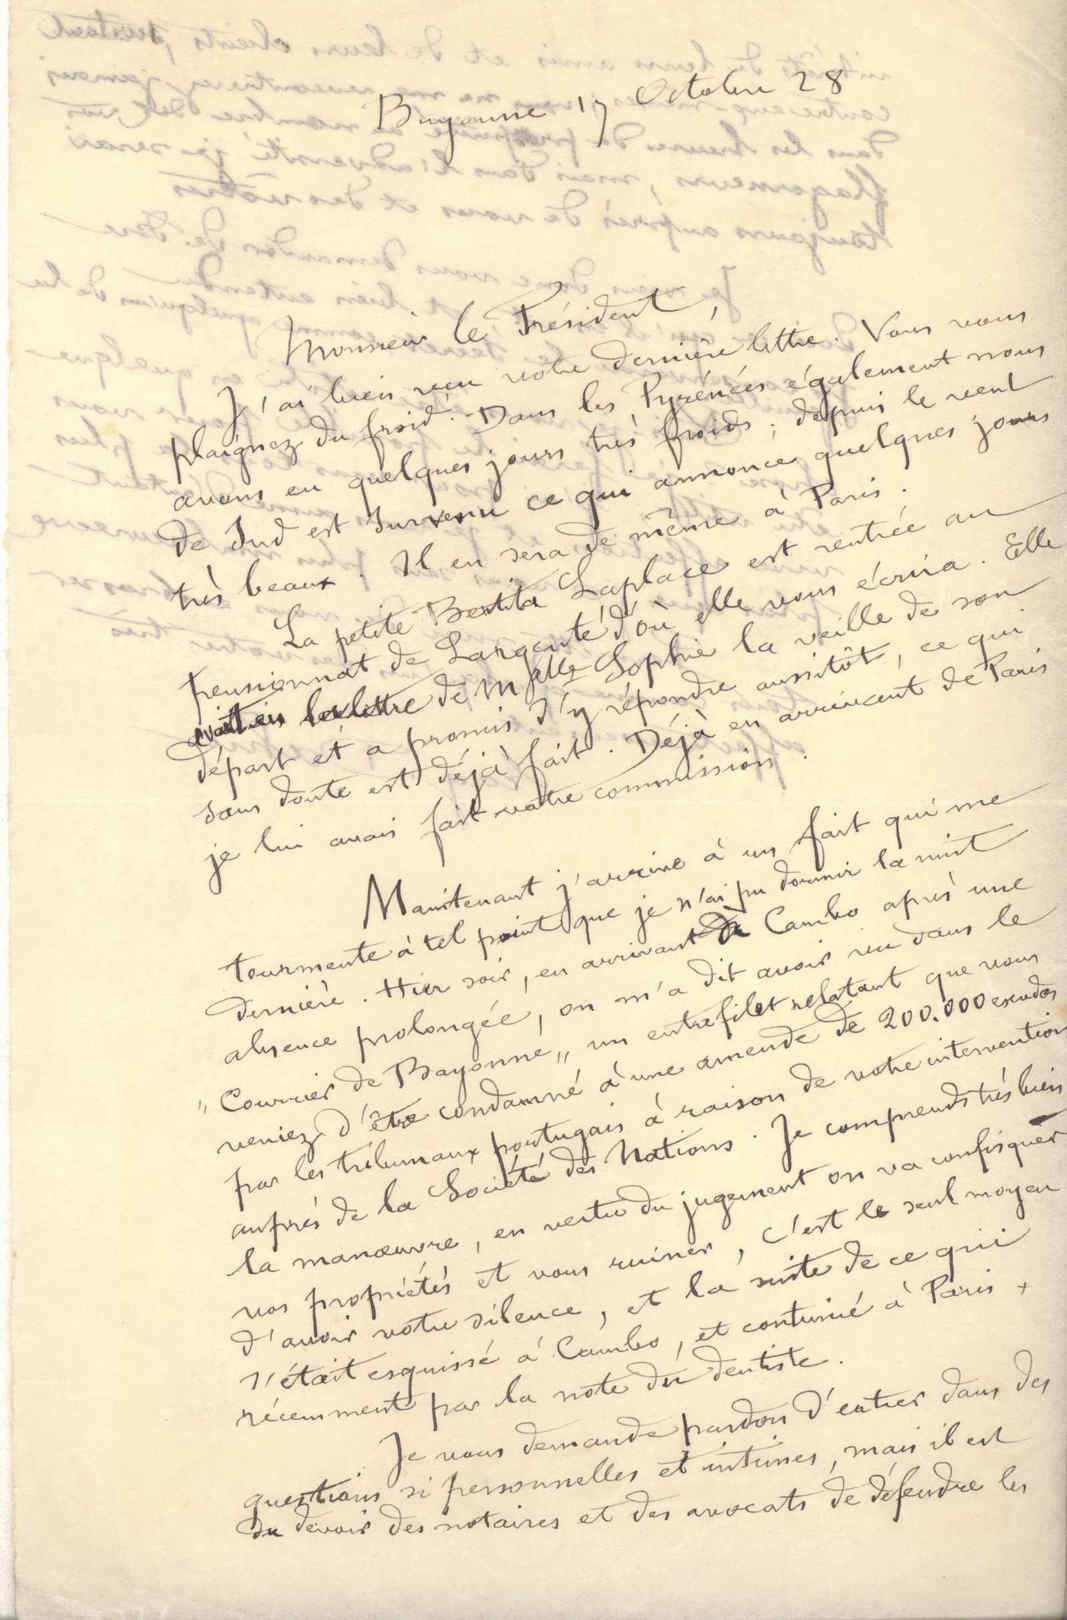 Bayonne 17 Octobre 28
Monsieur le Président,
J'ai bien reçu votre dernière lettre. Vous vous
plaignez du froid. Dans les Pyrénées également nous
avons eu quelques jours très froids ; depuis le vent
de Sud est survenu ce qui annonce quelques jours
très beaux. Il en sera de même à Paris.
La petite Bertita Laplace est rentrée au
pensionnat de Largenté d'où elle vous écrira. Elle
avait eu la lettre de Melle Sophie la veille de son
départ et a promis d'y répondre aussitôt, ce qui
sans doute est déjà fait. Déjà en arrivant de Paris
je lui avais fait votre commission.
Maintenant j'arrive à un fait qui me
tourmente à tel point que je n'ai pu dormir la nuit
dernière. Hier soir, en arrivant à Cambo après une
absence prolongée, on m'a dit avoir vu dans le
"Courrier de Bayonne" un entrefilet relatant que vous
veniez d'être condamné à une amende de 200.000 escudos
par les tribunaux portugais à raison de votre intervention
auprès de la Société des Nations. Je comprends très bien
la manœuvre, en vertu du jugement on va confisquer
vos propriétés et vous ruiner, c'est le seul moyen
d'avoir votre silence, et la suite de ce qui
s'était esquissé à Cambo, et continué à Paris
récemment par la note du dentiste.
Je vous demande pardon d'entrer dans des
questions si personnelles et intimes, mais il est
du devoir des notaires et des avocats de défendre les